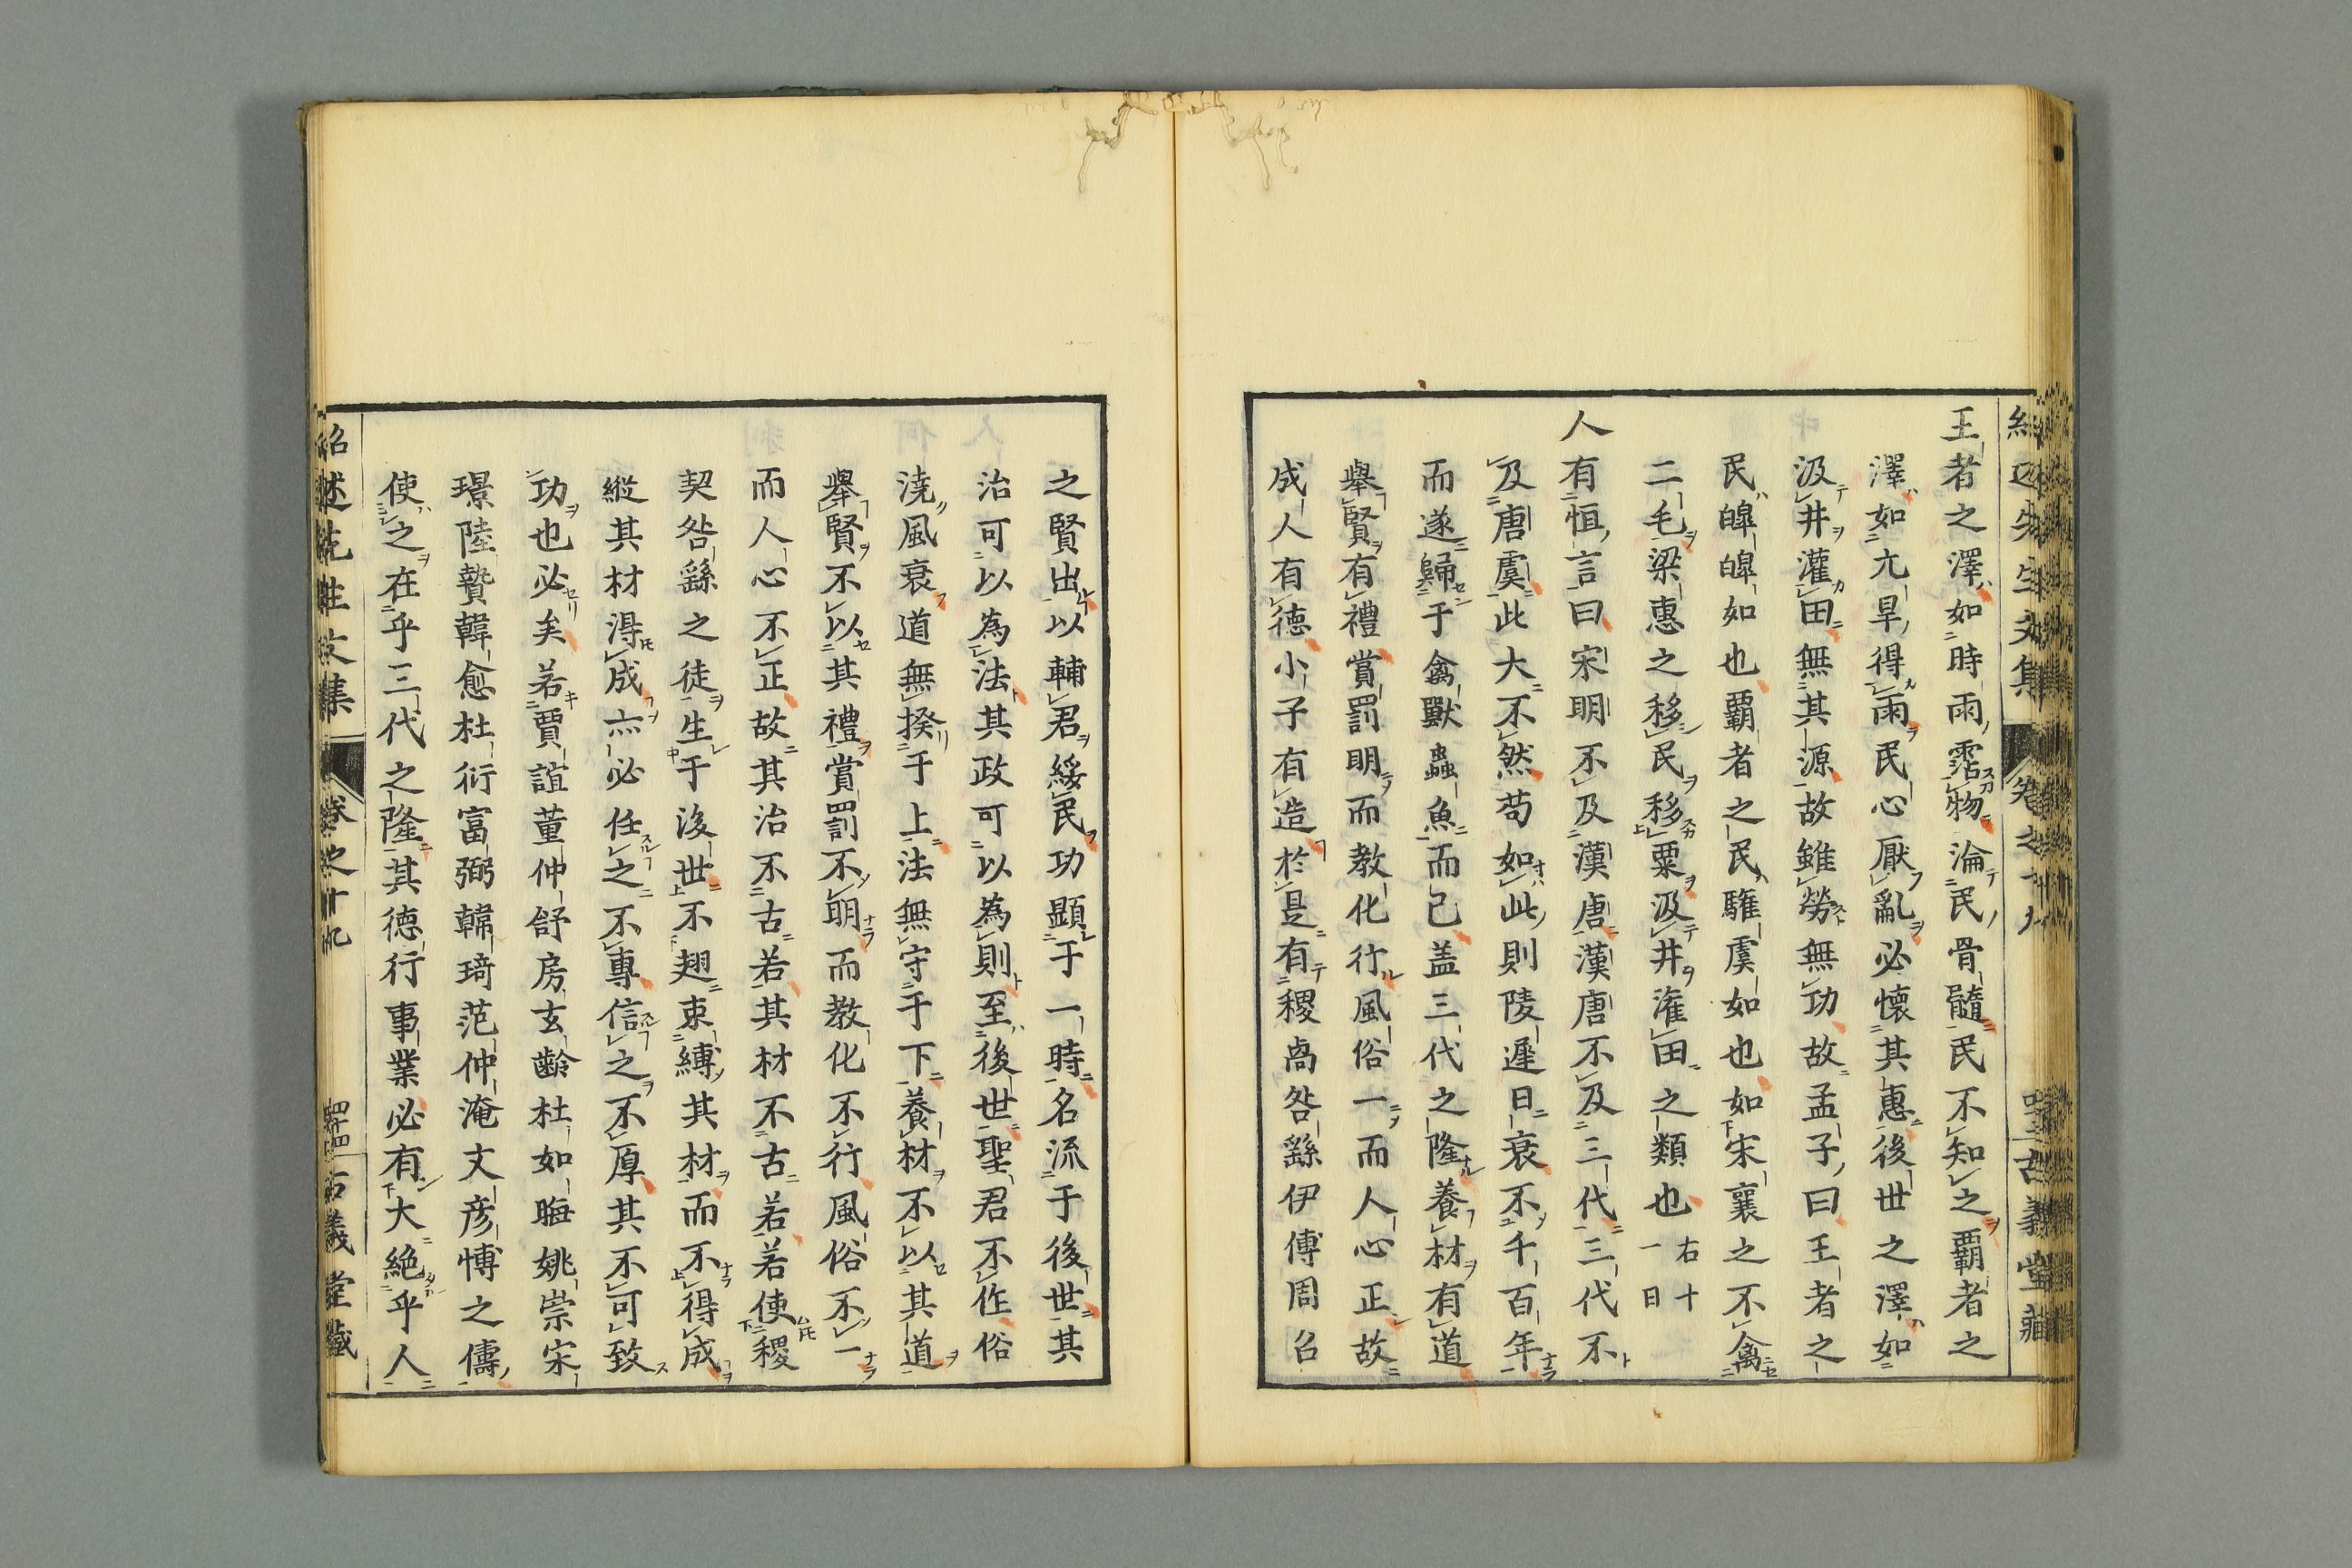 王者之澤如時雨霑物淪民骨髓民不知之覇者之
澤如亢旱得雨民心厭亂必懷其惠後世之澤如
汲井灌田無其源故雖勞無功故孟子曰王者之
民皥皥如也覇者之民驩虞如也如宋襄之不禽
二毛梁惠之移民移粟汲井潅田之類也右十一日
人有恒言曰宋明不及漢唐漢唐不及三代三代不
及唐虞此大不然苟如此則陵遲日衰不千百年
而遂歸于禽獸蟲魚而已盖三代之隆養材有道
舉賢有禮賞罰明而教化行風俗一而人心正故
成人有德小子有造於是有稷卨咎繇伊傅周召
之賢出以輔君綏民功顯于一時名流于後世其
治可以為法其政可以為則至後世聖君不作俗
澆風衰道無揆于上法無守于下養材不以其道
舉賢不以其禮賞罰不明而教化不行風俗不一
而人心不正故其治不古若其材不古若若使稷
契咎繇之徒生于後世不翅束縛其材而不得成
縦其材得成亦必任之不專信之不厚其不可致
功也必矣若賈誼董仲舒房玄齡杜如晦姚崇宋
璟陸贄韓愈杜衍富弼韓琦范仲淹文彦博之儔
使之在乎三代之隆其德行事業必有大絶乎人
紹述先生文集 卷之十九 四十四 古義堂藏